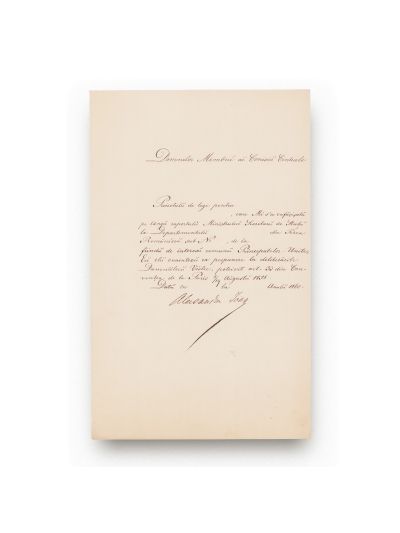 Domnilor Membrii ai Comisii Centrale
Proiectul de lege pentru
, care Mi s'a înfăţişatu
pe lângă raportulu Ministrului Secretaru de Statu
la Departamentulu din Ţéra
Românéscă sub No. , de la
fiindu de interesu comunu Principatelor Unite,
Eu ilu ca a propunere la deliberările
Domniilorŭ Vóstre, potrivit art. 33 din Con-
de la Paris 7/19 Augustu 1858.
Datu în la Anulu 1860.
Alexandru Ioan